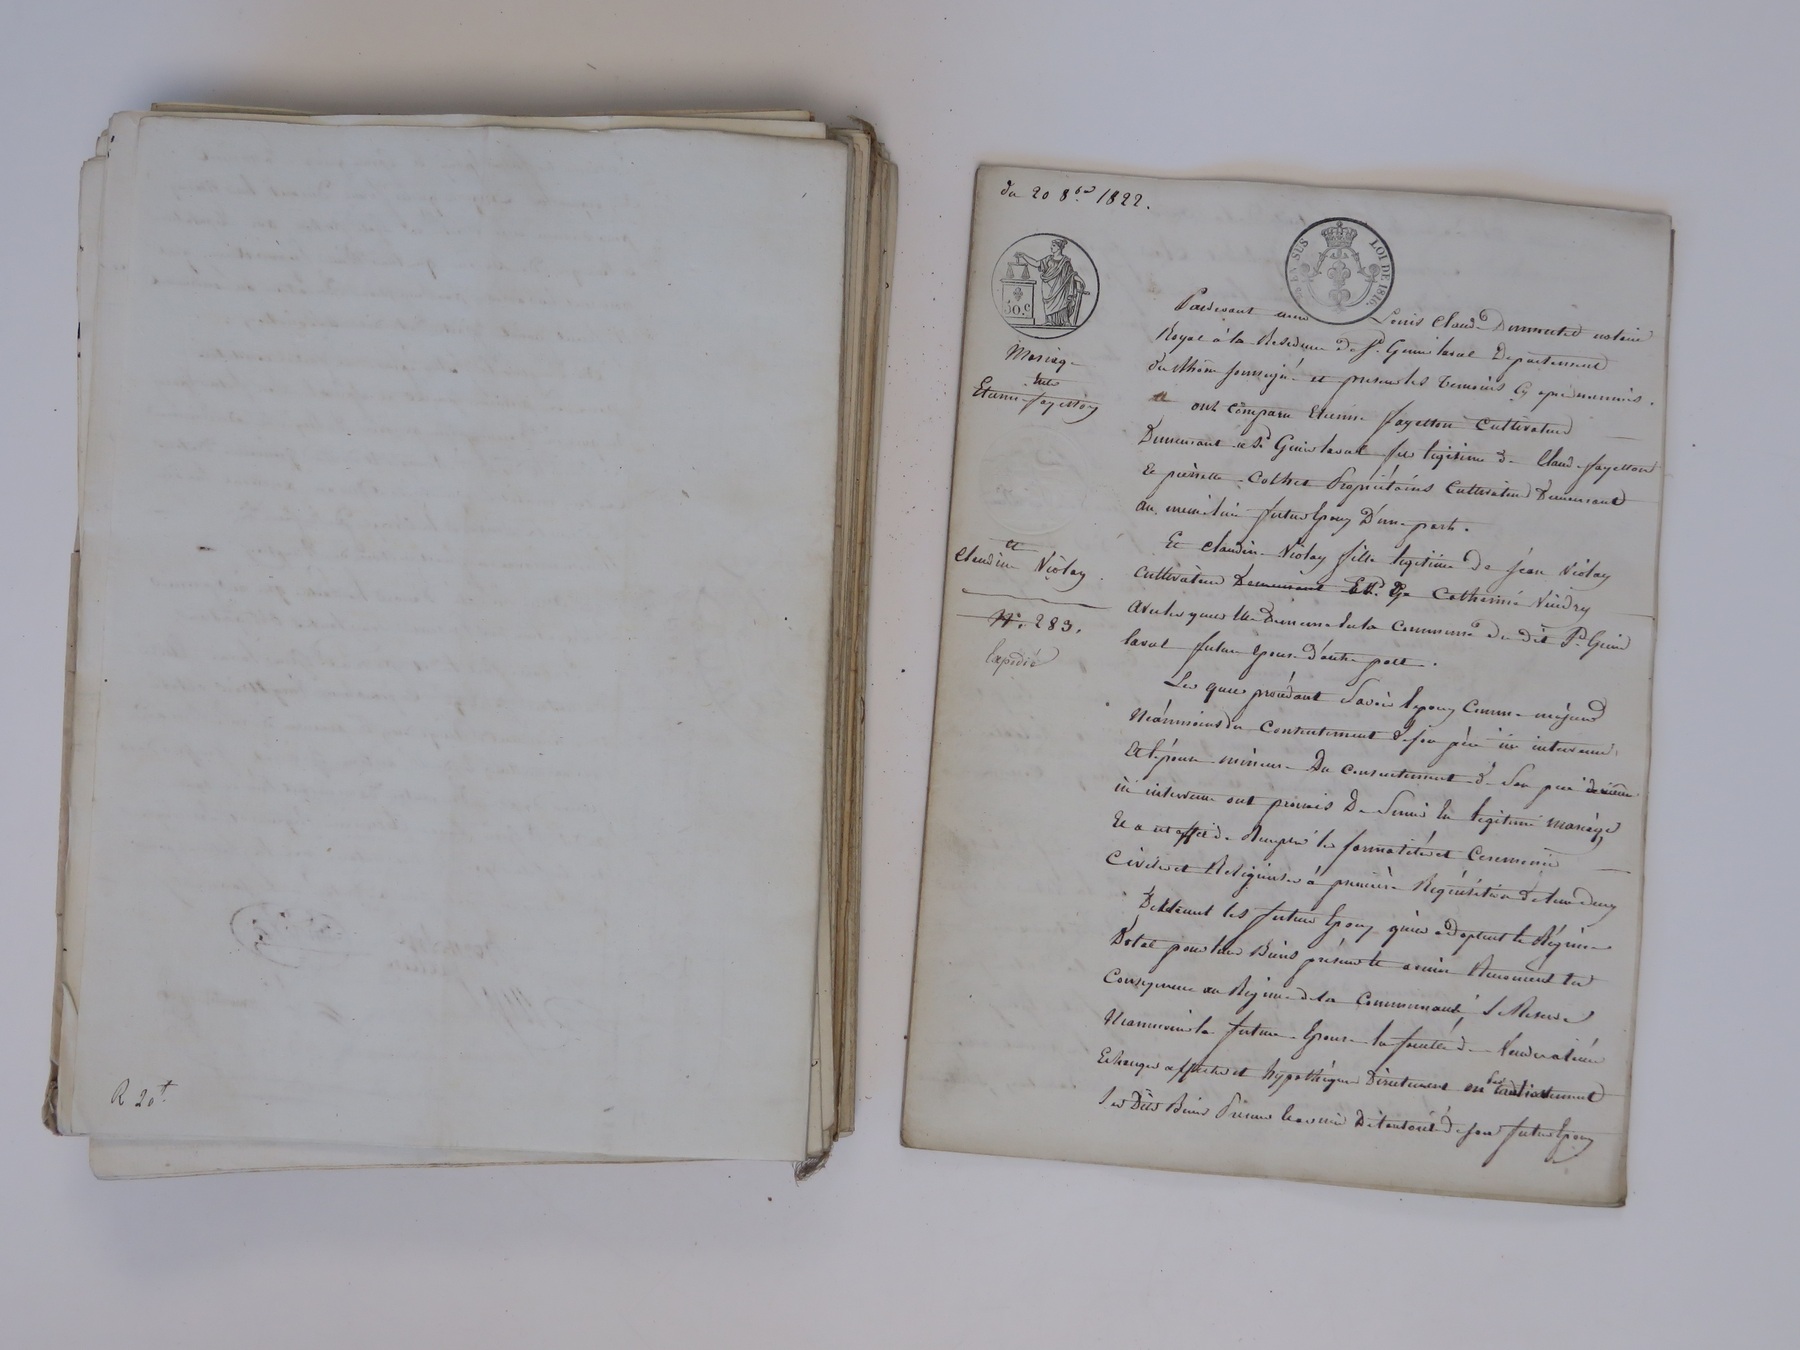 R 20t
du 20 8bre 1822.
EN SUS LOI DE 1816.
50.c
Mariage
entre
Etienne fayetton
et
Claudine Violay
N°. 283.
Expédié
Pardevant nous Louis Claude notaire
Royal à la Residence de St. Genis laval Departement
du Rhône soussigné et presens les temoins cy après nommés.
ont comparu Etienne fayetton Cultivateur
Demeurant a St Genis laval fils legitime de Claude fayetton
Et pierrette Propriétaires Cultivateurs Demeurant
au meme lieu futur Epoux D'une part.
Et Claudine Violay fille legitime de jean Violay
Cultivateur Demeurant Catherine Vindry
avec lesquels elle Demeure en la Commune du dit St Genis
laval future Epouse D'autre part.
Les quels procédant Savoir l'epoux Comme majeur
Néanmoins du Consentement de son père ici intervenu,
Et l'épouse mineure Du Consentement de Son père
ici intervenu ont promis De S'unir En legitime mariage
Et a cet effet de Remplir les formalités et Ceremonies
Civiles et Religieuses à première Réquisition de l'un d'eux
les futurs Epoux qu'ils adoptent le Régime
Dotal pour leurs Biens présens et avenir Renoncent en
Consequence au Régime de la Communauté, Se Reserve
Néanmoins la future Epouse la faculté de Vendre aliéner
Echanger affecter et hypothéquer Directement ou Indirectement
Ses Dits Biens Présens et avenir De l'autorité de son futur Epoux